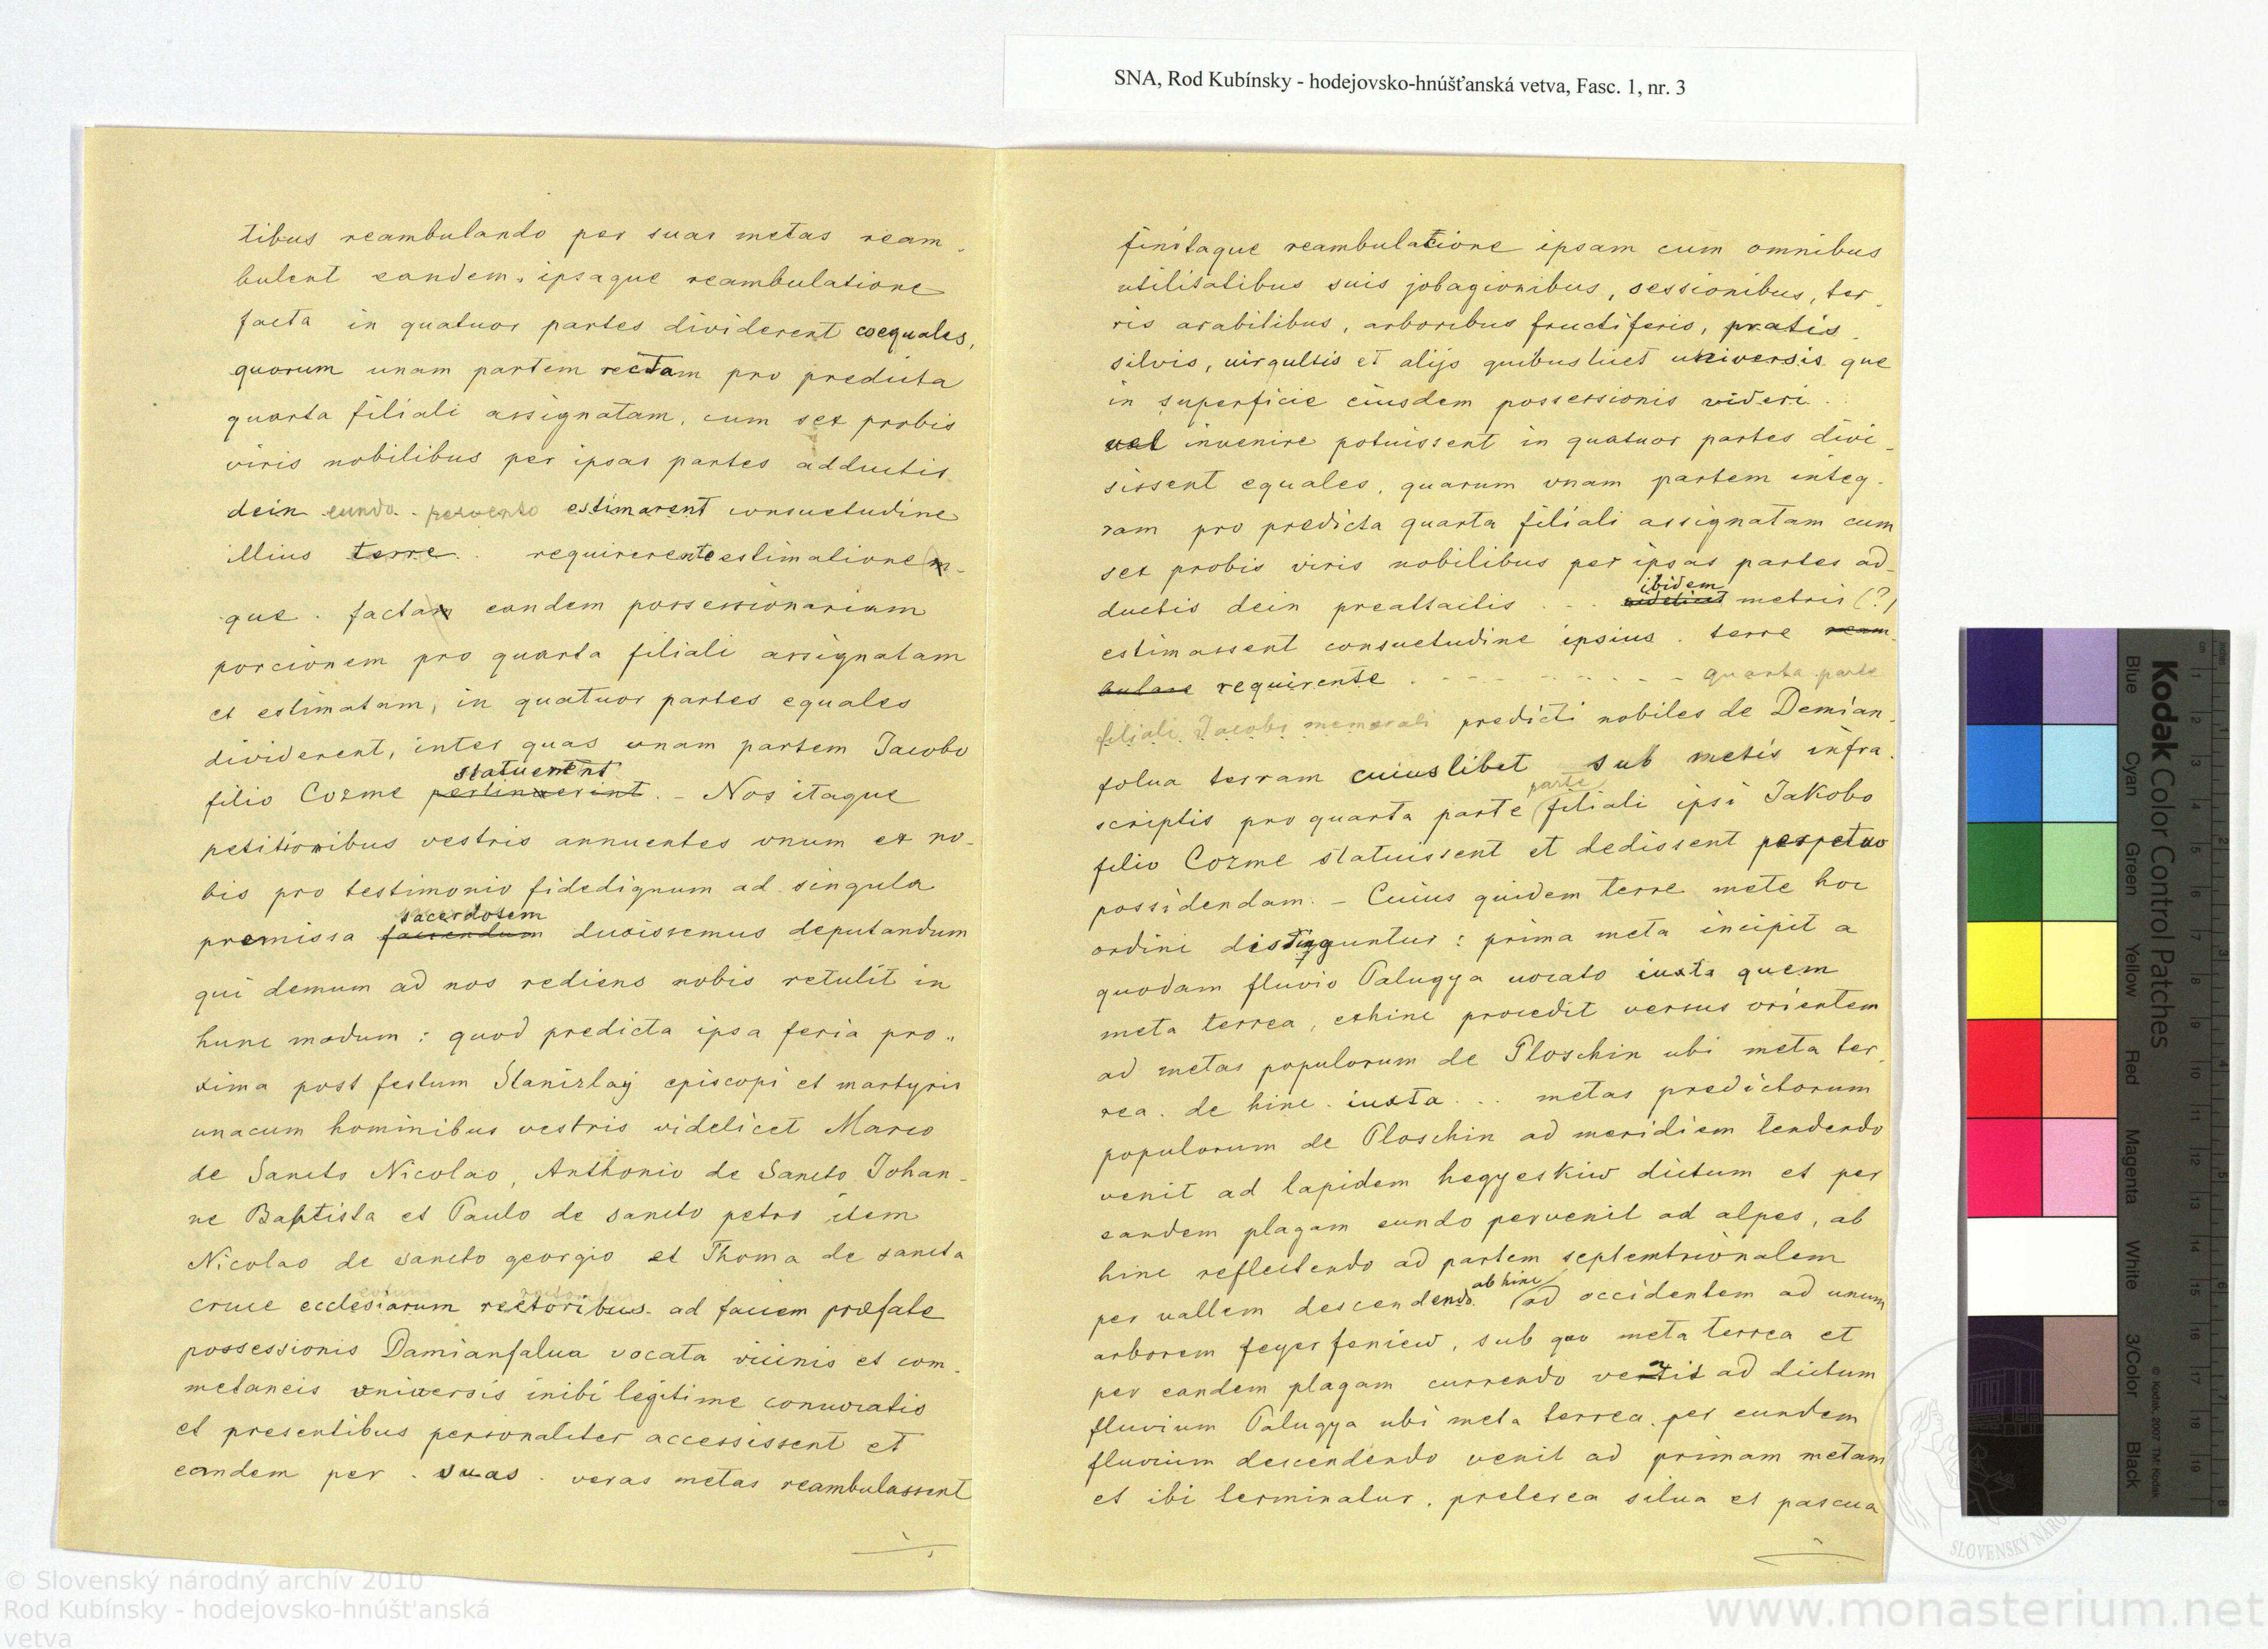 SNA, Rod Kubínsky - hodejovsko-hnúšťanská vetva, Fasc. 1, nr. 3
tibus reambulando per suas metas ream-
bulent eandem. ipsaque reambulatione
facta in quatuor partes dividerent coequales,
quorum unam partem rectam pro predicta
quarta filiali assignatam, cum sex probis
viris nobilibus per ipsas partes adductis
dein eundo - pervento estimarent consuetudine
illius terre . requirerente estimatione(m-
que . factam eandem possessionariam
porcionem pro quarta filiali assignatam
et estimatam, in quatuor partes equales
dividerent, inter quas unam partem Jacobo
statuerent
filio Cozme pertinxerint. - Nos itaque
petitionibus vestris annuentes vnum ex no-
bis pro testimonio fidedignum ad singula
sacerdotem
premissa faciendum duxissemus deputandum
qui demum ad nos rediens nobis retulit in
hunc modum : quod predicta ipsa feria pro„
xima post festum Stanizlaÿ episcopi et martyris
unacum hominibus vestris videlicet Marco
de Sancto Nicolao, Anthonio de Sancto Johan-
ne Baptista et Paulo de sancto petro item
Nicolao de sancto georgio et Thoma de sancta
cruce ecclesiarum rectoribus. ad faciem prefate
possessionis Damianfalua vocata vicinis et com-
metaneis vniversis inibi legitime conuocatis
et presentibus personaliter accessissent et
eandem per . suas . veras metas reambulassent
finitaque reambulatione ipsam cum omnibus
utilitatibus suis jobagionibus, sessionibus, ter-
ris arabilibus, arboribus fructiferis, pratis
silvis, uirgultis et alijs quibuslicet universis que
in superficie eiusdem possessionis videri .
vel invenire potuissent in quatuor partes divi-
sissent equales, quarum vnam partem integ-
ram pro predicta quarta filiali assignatam cum
sex probis viris nobilibus per ipsas partes ad-
ibidem
ductis dein preattactis . . . videlicet metris (?)
estimassent consuetudine ipsius . terre ream-
bulare requirente . - - - - - - - - quarta parte
filiali Jacobo memorati predicti nobiles de Demian-
folua terram cuiuslibet sub metis infra-
parte
scriptis pro quarta parte (filiali ipsi Jakobo
filio Cozme statuissent et dedissent perpetuo
possidendam. - Cuius quidem terre mete hoc
ordini distinguntur : prima meta incipit a
quodam fluvio Palugya uocato iuxta quem
meta terrea, exhinc procedit versus orientem
ad metas populorum de Ploschin ubi meta ter-
rea . de hinc . iuxta . . . metas predictorum
populorum de Ploschin ad meridiem tendendo
venit ad lapidem hegyeskiw dictum et per
eandem plagam eundo pervenit ad alpes, ab
hinc reflectendo ad partem septemtrionalem
ab hinc
per vallem descendendo. (ad occidentem ad unum
arborem feyerfeniew, sub quo meta terrea et
per eandem plagam currendo venit ad dictum
fluvium Palugya ubi meta terrea. per eundem
fluvium descendendo venit ad primam metam
et ibi terminatur. preterea silua et pascua
Kodak Color Control Patches
Blue Cyan Green Yellow Red Magenta White 3/Color Black
© Kodak, 2007 TM: Kodak
© Slovenský národný archív 2010
Rod Kubínsky - hodejovsko-hnúšt'anská
vetva
www.monasterium.net